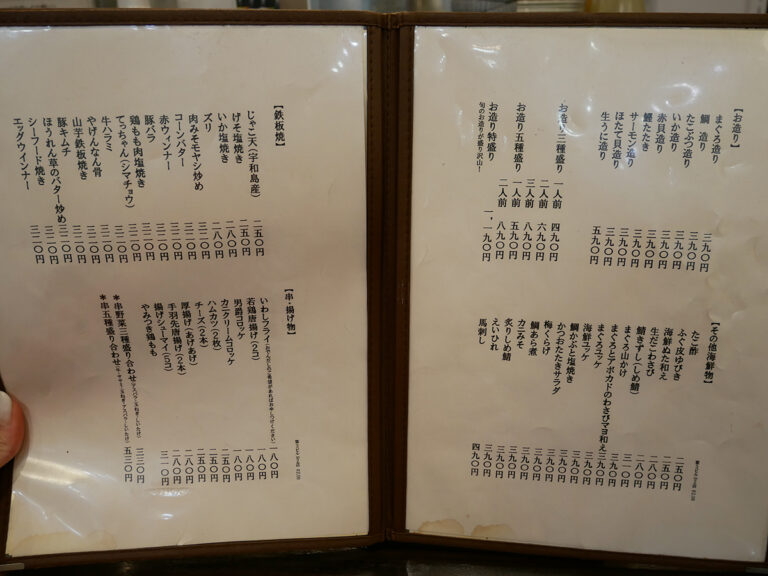 【お造り】
まぐろ造り 三九〇円
鯛 造り 三九〇円
たこぶつ造り 三九〇円
いか造り 三九〇円
赤貝造り 三九〇円
鰹たたき 三九〇円
サーモン造り 三九〇円
ほたて貝造り 三九〇円
生うに造り 五九〇円
お造り三種盛り 一人前 四九〇円
二人前 六九〇円
三人前 八九〇円
お造り五種盛り 一人前 五九〇円
二人前 八九〇円
お造り特盛り 一、一九〇円
旬のお造りが盛り沢山！
【その他海鮮物】
たこ酢 二五〇円
ふぐ皮ゆびき 二五〇円
海鮮ぬた和え 二五〇円
生だこわさび 二八〇円
鯖きずし(しめ鯖) 二八〇円
まぐろ山かけ 三一〇円
まぐろとアボカドのわさびマヨ和え 三九〇円
まぐろユッケ 三九〇円
海鮮ユッケ 三九〇円
鯛かぶと塩焼き 三九〇円
かつおたたきサラダ 三九〇円
梅くらげ 三九〇円
鯛あら煮 三九〇円
カニみそ 三九〇円
炙りしめ鯖 三九〇円
えいひれ 三九〇円
馬刺し 四九〇円
【鉄板焼】
じゃこ天(宇和島産) 二五〇円
げそ塩焼き 二五〇円
いか塩焼き 二八〇円
ズリ 二八〇円
肉みそモヤシ炒め 二二〇円
コーンバター 二二〇円
赤ウィンナー 二二〇円
豚バラ 三二〇円
鶏もも肉塩焼き 三二〇円
てっちゃん(シマチョウ) 三二〇円
牛ハラミ 三二〇円
やげんなん骨 三二〇円
山芋鉄板焼き 三二〇円
豚キムチ 三二〇円
ほうれん草のバター炒め 三二〇円
シーフード焼き 三二〇円
エッグウインナー 三二〇円
【串・揚げ物】
いわしフライ 一八〇円
若鶏唐揚げ(2コ) 一八〇円
男爵コロッケ 一八〇円
カニクリームコロッケ 二五〇円
ハムカツ(2枚) 二五〇円
チーズ(2本) 二五〇円
厚揚げ(あげあげ) 二八〇円
手羽先唐揚げ(2本) 二八〇円
揚げシューマイ 三一〇円
やみつき鶏もも
*串野菜三種盛り合わせ 三三〇円
*串五種盛り合わせ 五三〇円